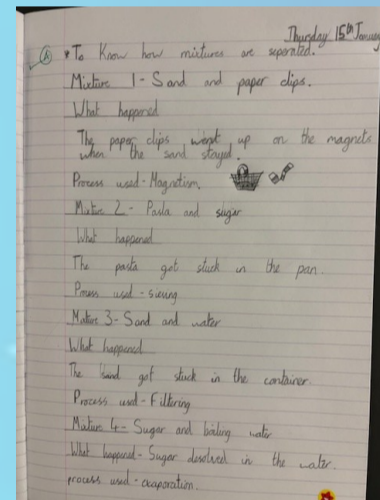 Thursday 15th January
A * To Know how mixtures are seperated.
Mixture 1 - Sand and paper clips.
What happened
The paper clips went up on the magnets
when the sand stayed.
Process used - Magnetism.
Mixture 2 - Pasta and sugar
What happened
The pasta got stuck in the pan.
Process used - sieving
Mixture 3 - Sand and water
What happened
The sand got stuck in the container.
Process used - Filtering
Mixture 4 - Sugar and boiling water
What happened - Sugar desolved in the water.
process used - evaporation.